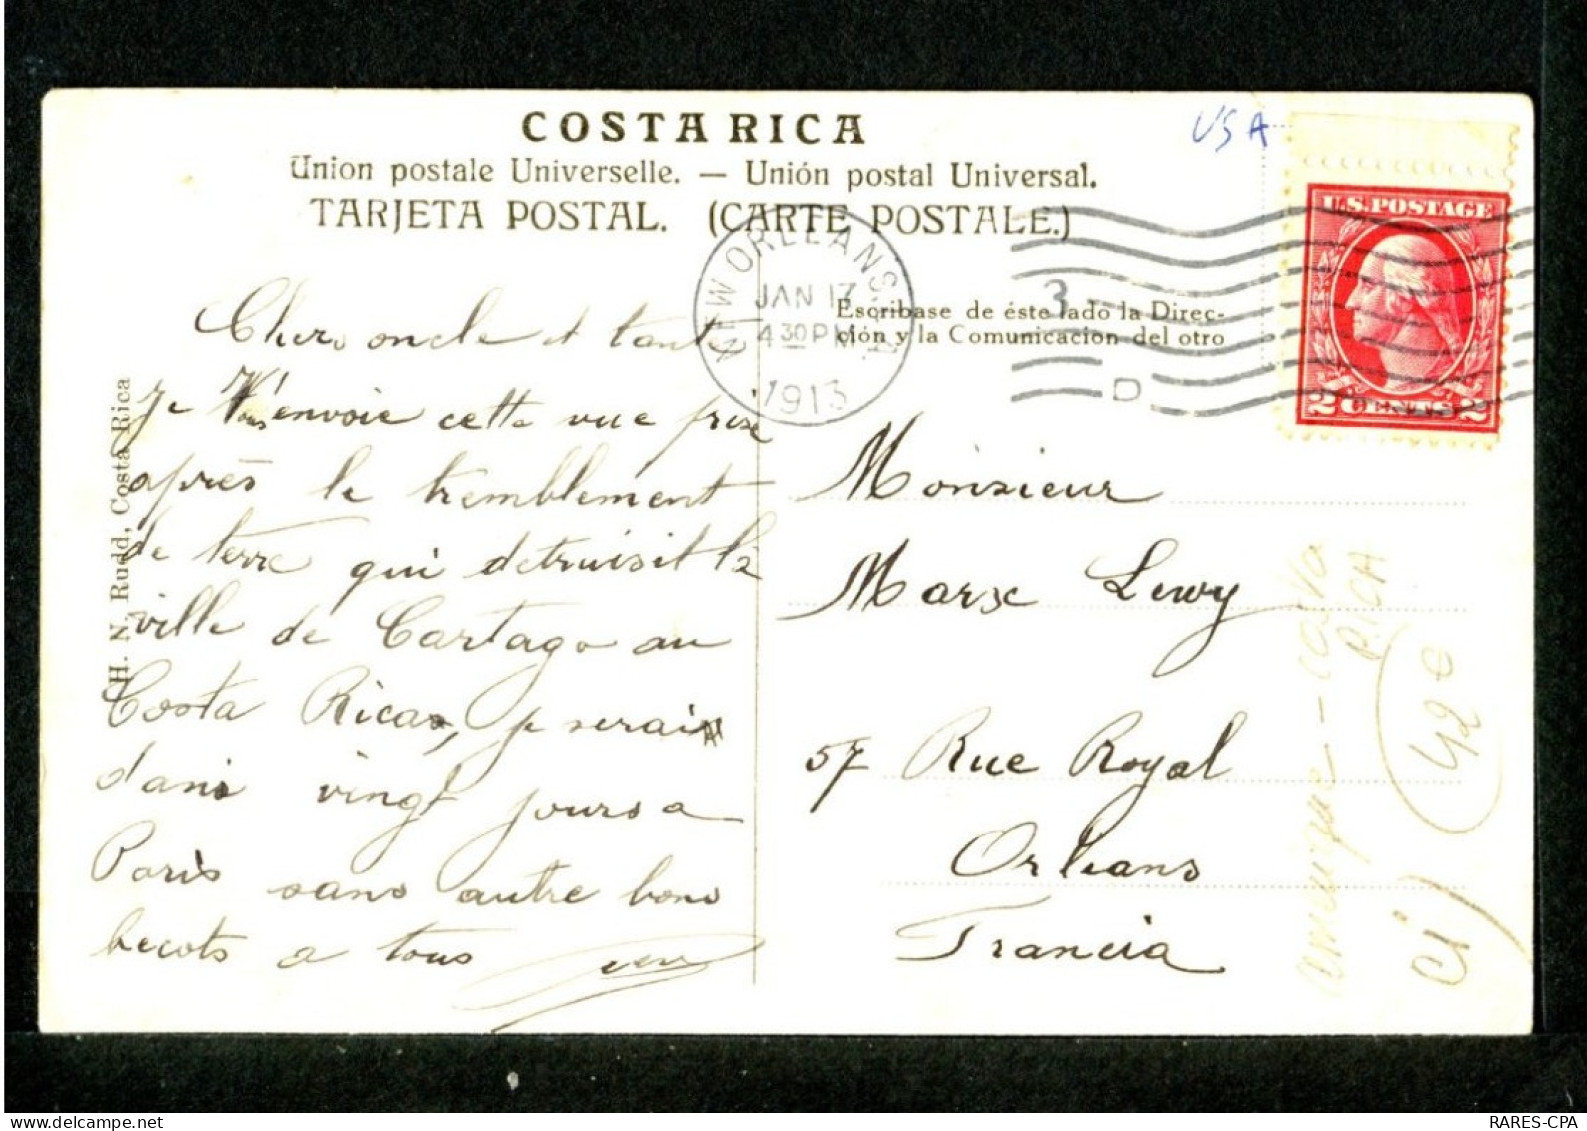 COSTA RICA
Union postale Universelle. — Unión postal Universal.
TARJETA POSTAL. (CARTE POSTALE.)
USA
U.S. POSTAGE
2 CENTS 2
NEW ORLEANS,
JAN 17
4 30 PM
1913
3
D
Escribase de éste lado la Direc-
ción y la Comunicacion del otro
H. N. Rudd, Costa Rica
Chers oncle et tante
Je vous envoie cette vue prise
après le tremblement
de terre qui detruisit la
ville de Cartago au
Costa Rica, je serai
dans vingt jours a
Paris sans autre bons
becots a tous
Monsieur
Marx Lewy
57 Rue Royal
Orleans
Francia
amerique - costa
RICA
42€
www.delcampe.net
RARES-CPA